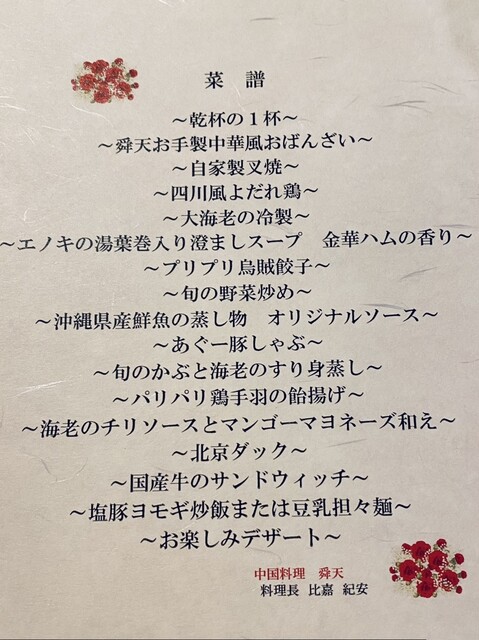 菜 譜
～乾杯の１杯～
～舜天お手製中華風おばんざい～
～自家製叉焼～
～四川風よだれ鶏～
～大海老の冷製～
～エノキの湯葉巻入り澄ましスープ　金華ハムの香り～
～プリプリ烏賊餃子～
～旬の野菜炒め～
～沖縄県産鮮魚の蒸し物　オリジナルソース～
～あぐー豚しゃぶ～
～旬のかぶと海老のすり身蒸し～
～パリパリ鶏手羽の飴揚げ～
～海老のチリソースとマンゴーマヨネーズ和え～
～北京ダック～
～国産牛のサンドウィッチ～
～塩豚ヨモギ炒飯または豆乳担々麺～
～お楽しみデザート～
中国料理　舜天
料理長　比嘉　紀安